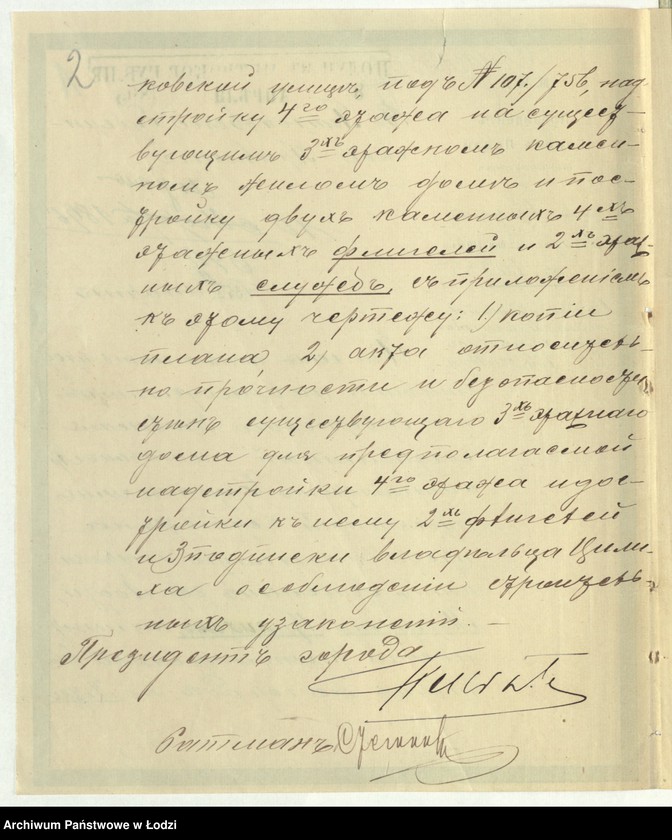 2
ковской улицѣ, подъ № 107./756, над-
стройку 4го этажа на сущест-
вующимъ 3хъ этажномъ камен-
номъ жиломъ домѣ и пос-
тройку двухъ каменныхъ 4хъ
этажныхъ флигелей и 2хъ этаж-
ныхъ службъ, съ приложеніемъ
къ этому чертежу: 1) копіи
плана 2) акта относитель-
но прочности и безопасности
стѣнъ существующаго 3хъ этажнаго
дома для предполагаемой
надстройки 4го этажа и дос-
тройки къ нему 2хъ флигелей
и 3) подписки владѣльца Цили-
ха о соблюденіи строитель-
ныхъ узаконеній. —
Президентъ города
Ратманъ
Archiwum Państwowe w Łodzi